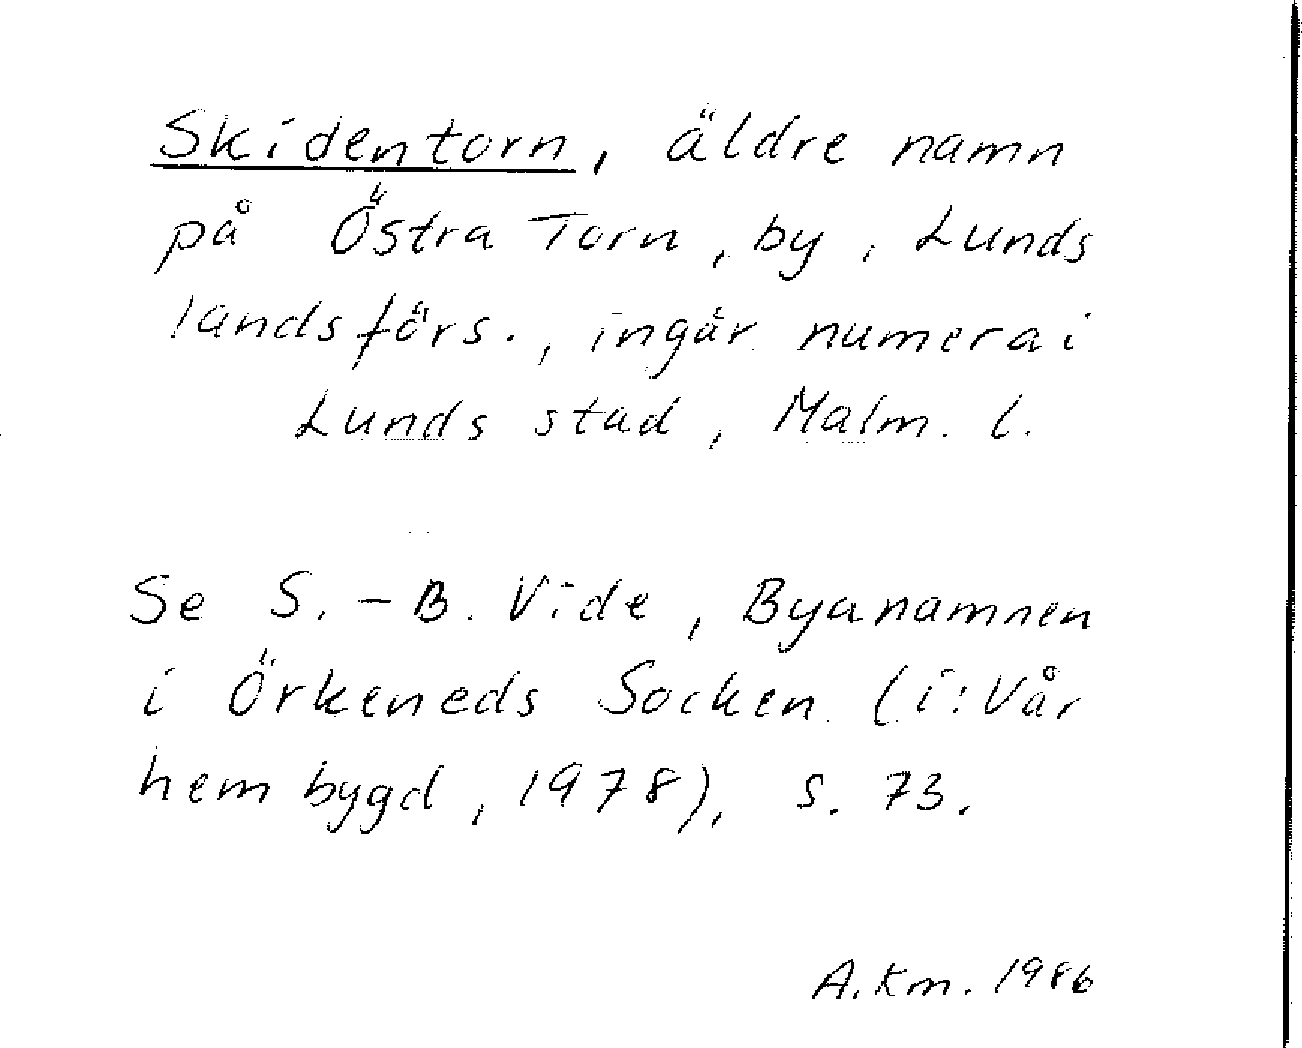 Skidentorn, äldre namn
på Östra Torn, by, Lunds
landsförs., ingår numera i
Lunds stad, Malm. l.
Se S.-B. Vide, Byanamnen
i Örkeneds Socken (i: Vår
hembygd, 1978), s. 73.
A.Km. 1986